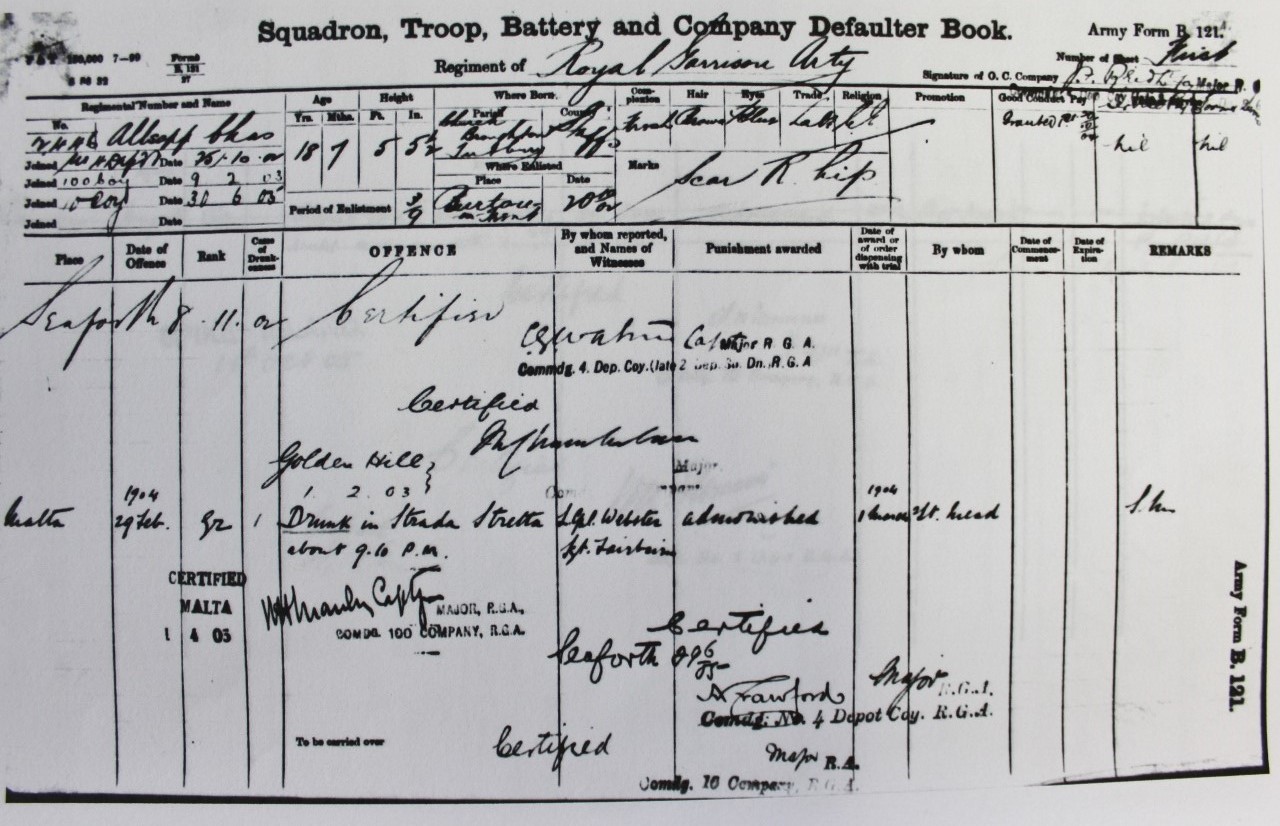 Squadron, Troop, Battery and Company Defaulter Book.
Army Form B. 121.
Forms
B. 121
Number of Sheet First
Regiment of Royal Garrison Arty
Signature of O. C. Company Major R. G
Regimental Number and Name
Age
Height
Where Born
Complexion
Hair
Eyes
Trade
Religion
Promotion
Good Conduct Pay
Yrs. Mths. Ft. In.
Parish
County
No. Allsopp Chas
Church
Broughton
Tutbury
Staffs
Fresh Brown Blue CE
Granted
nil nil
18 7 5 5½
Joined Date 25.10.02
Where Enlisted
Marks
Scar R. hip
Joined 100 Coy Date 9 2 03
Place Date
Joined 10 Coy Date 30 6 05
Period of Enlistment 3/9
Burton-on-Trent
Joined Date
Place
Date of Offence
Rank
Case of Drunkenness
OFFENCE
By whom reported, and Names of Witnesses
Punishment awarded
Date of award or of order dispensing with trial
By whom
Date of Commencement
Date of Expiration
REMARKS
Seaforth 8.11.02 Certified
Capt Major R. G. A.
Commdg. 4. Dep. Coy. (late 2 Dep. So. Dn. R. G. A
Certified
Chamberlain
Golden Hill
Major
1. 2. 03
Malta 1904 29 Feb. Gr 1 Drunk in Strada Stretta Webster admonished 1904 Lt. Head
about 9.10 P.M. Sgt. Fairbairn
CERTIFIED
MALTA
1 4 03
Capt MAJOR, R.G.A.,
COMDG. 100 COMPANY, R.G.A.
Certified
Seaforth
A Crawford Major R.G.A.
Comdg. No. 4 Depot Coy. R.G.A.
To be carried over
Certified
Major R.A.
Comdg. 10 Company, R.G.A.
Army Form B. 121.